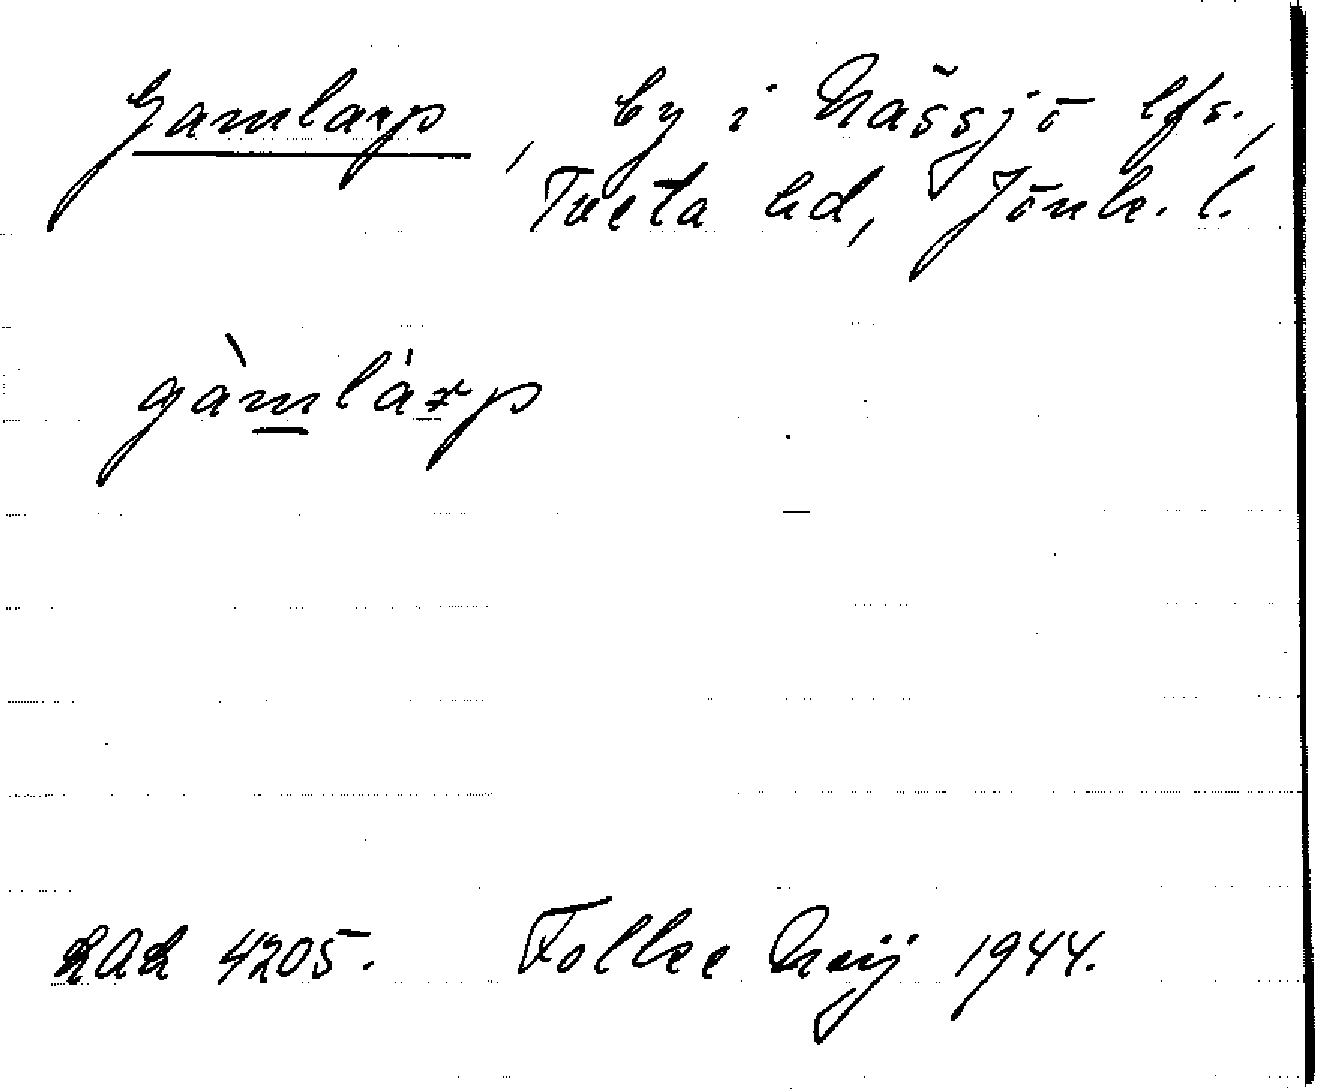 Gamlarp, by i Nässjö lfs.,
Tveta hd, Jönk. l.
gàmlárp
4205. Folke Neij 1944.